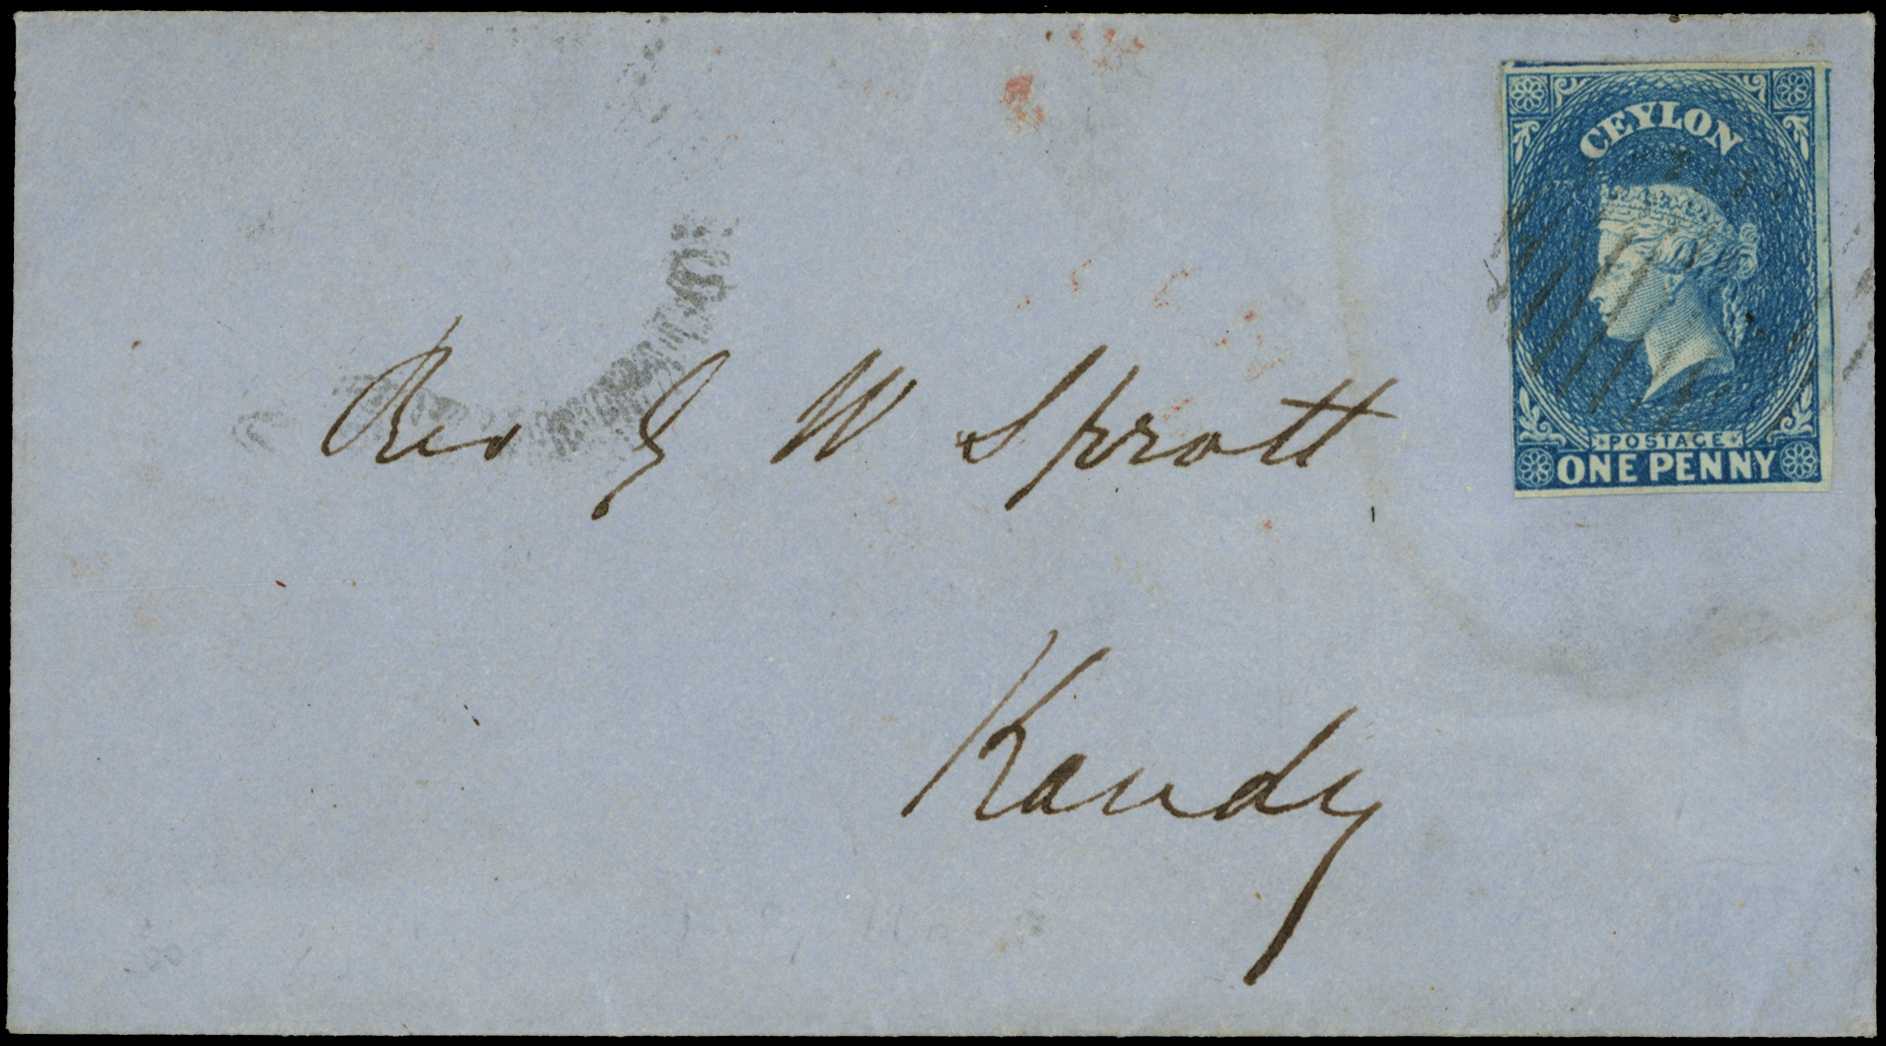 CEYLON
POSTAGE
ONE PENNY
Rev G W Sprott
Kandy